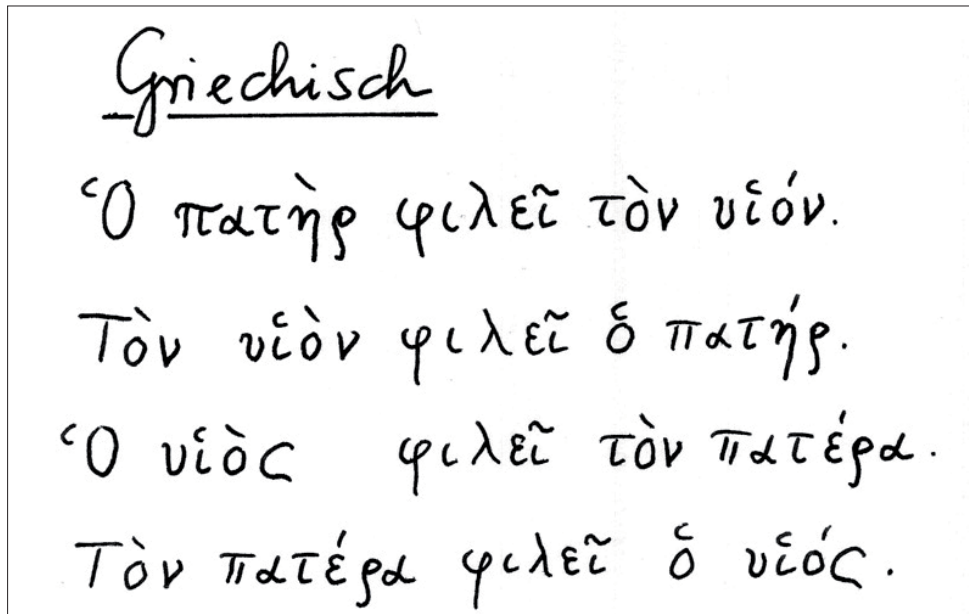 Griechisch
Ὁ πατὴρ φιλεῖ τὸν υἱόν.
Τὸν υἱὸν φιλεῖ ὁ πατήρ.
Ὁ υἱὸς φιλεῖ τὸν πατέρα.
Τὸν πατέρα φιλεῖ ὁ υἱός.